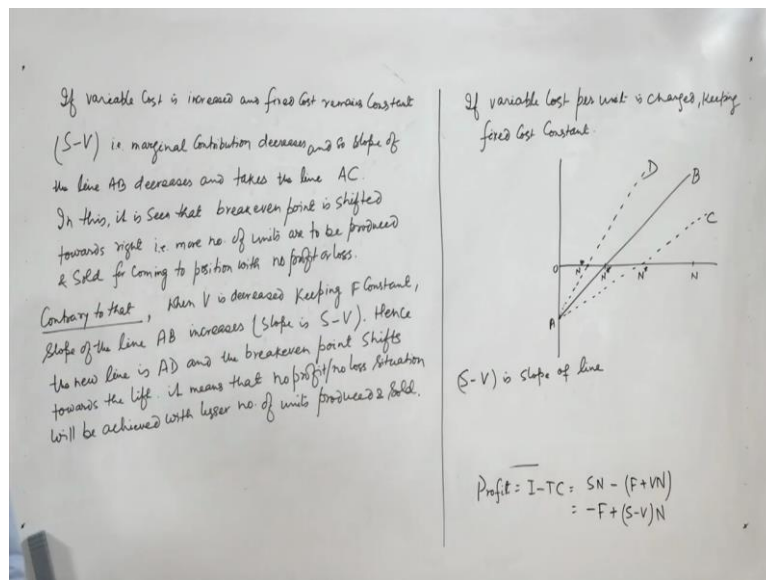 If variable Cost is increased and fixed Cost remains Constant
(S-V) i.e. marginal Contribution decreases and so slope of
the line AB decreases and takes the line AC.
In this, it is seen that breakeven point is shifted
towards right i.e. more no. of units are to be produced
& Sold for Coming to position with no profit or loss.
Contrary to that, when V is decreased Keeping F Constant,
Slope of the line AB increases (Slope is S-V). Hence
the new line is AD and the breakeven point Shifts
towards the life. it means that no profit/no loss Situation
will be achieved with lesser no. of units produced & Sold.
If variable Cost per unit is changed, Keeping
fixed Cost Constant.
D
B
C
O
N*
N*
N*
N
A
(S-V) is slope of line
Profit = I-TC = SN - (F+VN)
= -F+(S-V)N